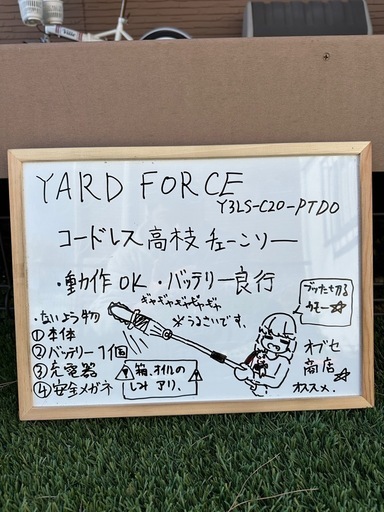 YARD FORCE
Y3LS-C20-PTD0
コードレス高枝チェーンソー
・動作OK ・バッテリー良行
ギャギャギャギャギャ
※うるさいです。
ブッたち切る
カモー☆
・ないよう物
①本体
②バッテリー1個
③充電器
④安全メガネ
箱、オイルの
しみ アリ、
オブセ
商店☆
オススメ、